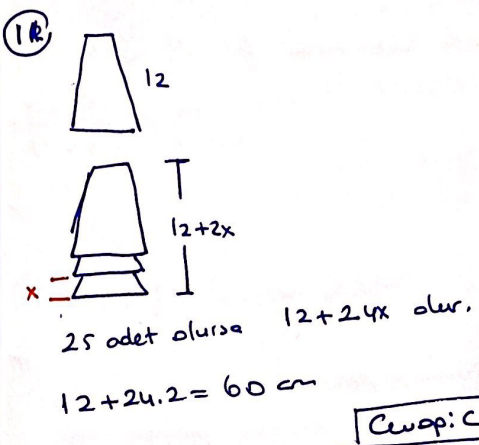 12
12
12+2x
x
25 adet olursa 12+24x olur.
12+24.2=60 cm
Cevap: C